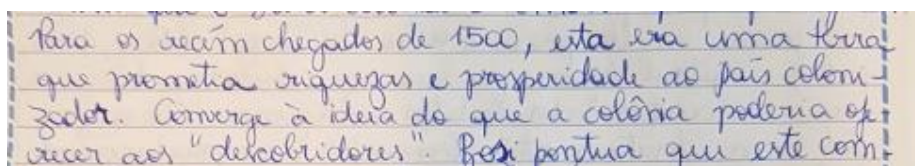 Para os recém chegados de 1500, esta era uma terra
que prometia riquezas e prosperidade ao país colon-
zador. Converge à ideia do que a colônia poderia ofe-
recer aos "descobridores". Bosi pontua que este com-